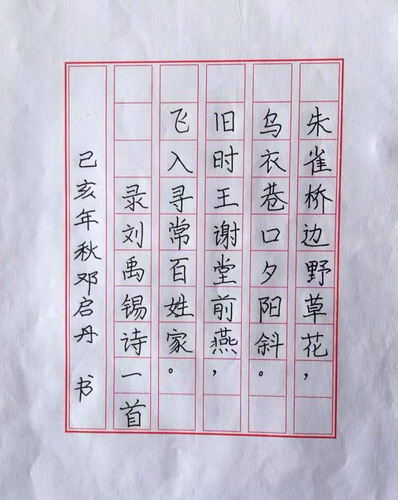 朱雀桥边野草花，
乌衣巷口夕阳斜。
旧时王谢堂前燕，
飞入寻常百姓家。
录刘禹锡诗一首
己亥年秋邓启丹 书